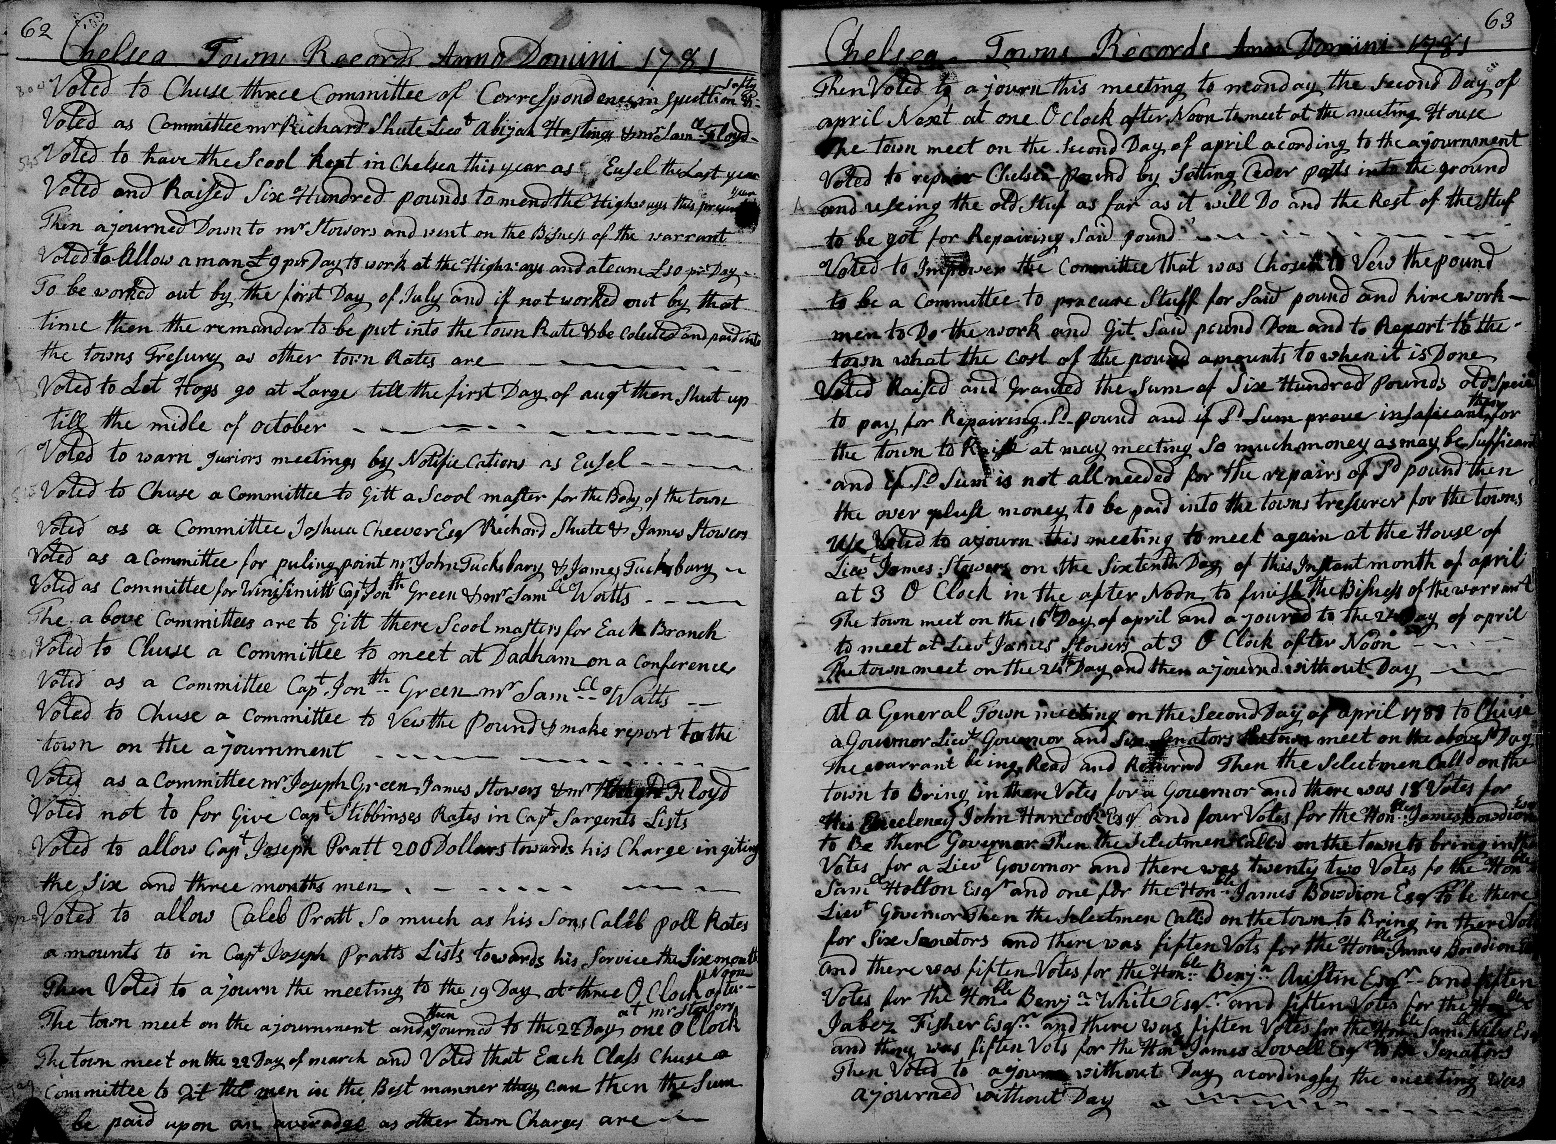 62
Chelsea Town Records Anno Domini 1781
Voted to Chuse three Committee of Correspondence in Question
Voted as Committee mr Richard Shute Lieut Abijah Hastings & mr Saml Floyd
Voted to have the Scool kept in Chelsea this year as Eusel the Last year
Voted and Raised Six Hundred pounds to mend the Highways this present year
Then ajourned Down to mr Stowers and went on the Bisness of the warrant
Voted to Allow a man £9 per Day to work at the Highways and a team £10 pr Day
To be worked out by the first Day of July and if not worked out by that
time then the remander to be put into the town Rate & be Colected and paid into
the towns Tresury as other town Rates are
Voted to Let Hogs go at Large till the first Day of augt then Shut up
till the midle of october
Voted to warn Juniors meetings by Notifications as Eusel
Voted to Chuse a Committee to Gitt a Scool master for the Body of the town
Voted as a Committee Joshua Cheever Esqr Richard Shute & James Stowers
Voted as a Committee for puling point mr John Tucksbary & James Tucksbury
Voted as Committee for Winisimitt Capt Jonth Green & mr Samll Watts
The above Committees are to Gitt there Scool masters for Each Branch
Voted to Chuse a Committee to meet at Dadham on a Conference
Voted as a Committee Capt Jonth Green mr Samll Watts
Voted to Chuse a Committee to Vew the Pound & make report to the
town on the ajournment
Voted as a Committee mr Joseph Green James Stowers & mr Hugh Floyd
Voted not to for Give Capt Stibbinses Rates in Capt Sargents Lists
Voted to allow Capt Joseph Pratt 200 Dollars towards his Charge in giting
the Six and three months men
Voted to allow Caleb Pratt So much as his Sons Caleb poll Rates
amounts to in Capt Joseph Pratts Lists towards his Service the Six month
Then Voted to ajourn the meeting to the 19 Day at three O Clock after Noon
The town meet on the ajournment and then ajourned to the 22 Day at mr Stowers one O Clock
The town meet on the 22 Day of march and Voted that Each Class Chuse a
Committee to Git the men in the Best manner they can then the Sum
be paid upon an averadge as other town Charges are
63
Chelsea Towns Records Anno Domini 1781
Then Voted to ajourn this meeting to monday the Second Day of
april Next at one O Clock after Noon to meet at the meeting House
The town meet on the Second Day of april acording to the ajournment
Voted to repair Chelsea pound by Setting Ceder posts into the ground
and useing the old Stuf as far as it will Do and the Rest of the Stuf
to be got for Repairing Said pound
Voted to Impower the Committee that was Chosen to Vew the pound
to be a Committee to procure Stuff for Said pound and hire work-
men to Do the work and Git Said pound Don and to Report to the
town what the Cost of the pound amounts to when it is Done
Voted Raised and Granted the Sum of Six Hundred Pounds old Specie
to pay for Repairing Sd pound and if Sd Sum prove insaficant then for
the town to Raise at may meeting So much money as may be Sufficant
and if Sd Sum is not all needed for the repairs of Sd pound then
the over plush money to be paid into the towns tresurer for the towns
Use Voted to ajourn this meeting to meet again at the House of
Lieut James Stowers on the Sixtenth Day of this Instant month of april
at 3 O Clock in the after Noon to finish the Bisness of the warrant
The town meet on the 16th Day of april and ajourned to the 24 Day of april
to meet at Lieut James Stowers at 3 O Clock after Noon
The town meet on the 24th Day and then ajournd without Day
At a General Town meeting on the Second Day of april 1781 to Chuse
a Governor Lieut Governor and Six Senators the town meet on the above Sd Day
The warrant being Read and Returned Then the Selectmen Calld on the
town to Bring in there Votes for a Governor and there was 18 Votes for
His Excelency John Hancock Esqr and four Votes for the Honble James Bowdion Esqr
to be there Governor Then the Selectmen Called on the town to bring in there
Votes for a Lieut Governor and there was twenty two Votes for the Honble
Saml Holton Esqr and one for the Honble James Bowdion Esqr to be there
Lieut Governor Then the Selectmen Called on the town to Bring in there Votes
for Six Senators and there was fiften Vots for the Honble James Bowdion Esqr
and there was fiften Votes for the Honble Benjn Austin Esqr and fiften
Votes for the Honble Benjn White Esqr and fiften Votes for the Honble
Jabez Fisher Esqr and there was fiften Votes for the Honble Saml Niles Esqr
and there was fiften Vots for the Honble James Lovell Esqr to be Senators
Then Voted to ajourn without Day acordingly the meeting was
ajourned without Day